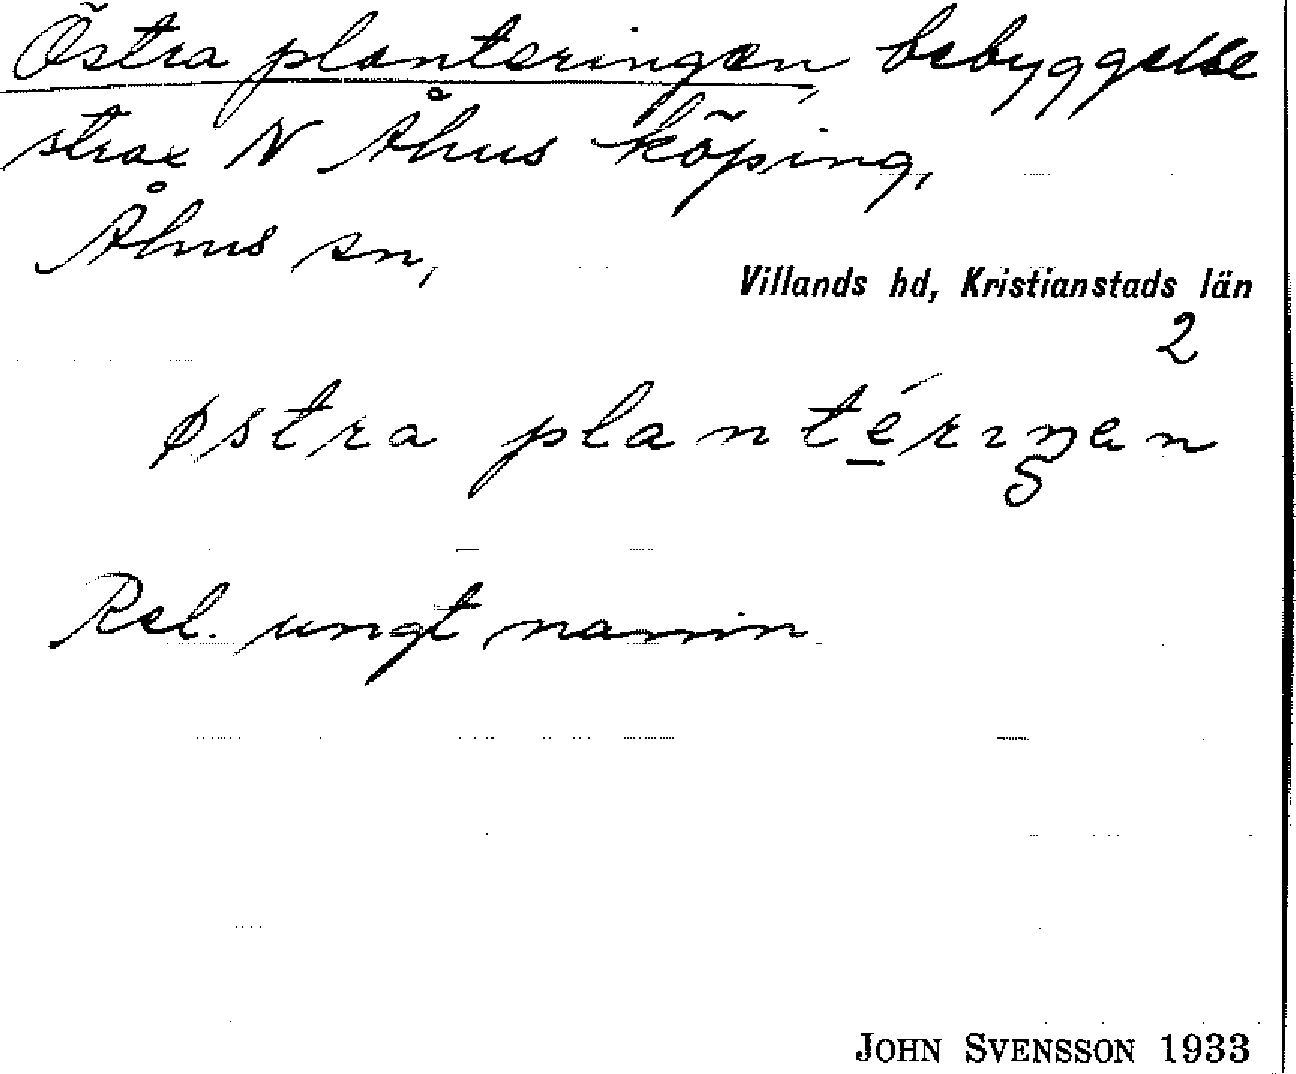 Östra planteringen, bebyggelse
strax N Åhus köping,
Åhus sn,
Villands hd, Kristianstads län
2
østra plantérıŋen
5
Rel. ungt namn
JOHN SVENSSON 1933